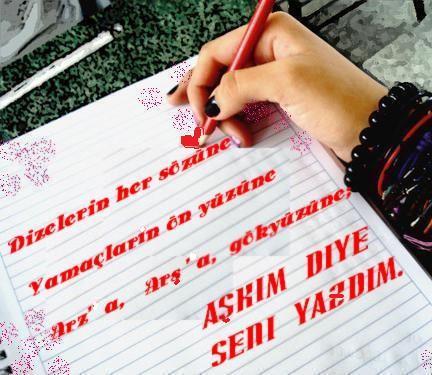 Dizelerin her sözüne
Yamaçların ön yüzüne
Arz' a, Arş' a, gökyüzüne;
AŞKIM DIYE
SENI YAZDIM.